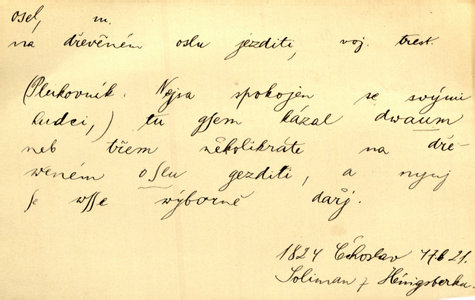 osel, m.
na dřevěném oslu jezditi, voj. trest.
(Plukovník: Nejsa spokojen se svými
hudci,) tu gsem kázal dwaum
neb třem několikráte na dře-
weném oslu gezditi, a nynj
se wsse výborně dařj.
1824 Čechoslav 21.
Soliman z Hönigsberka.